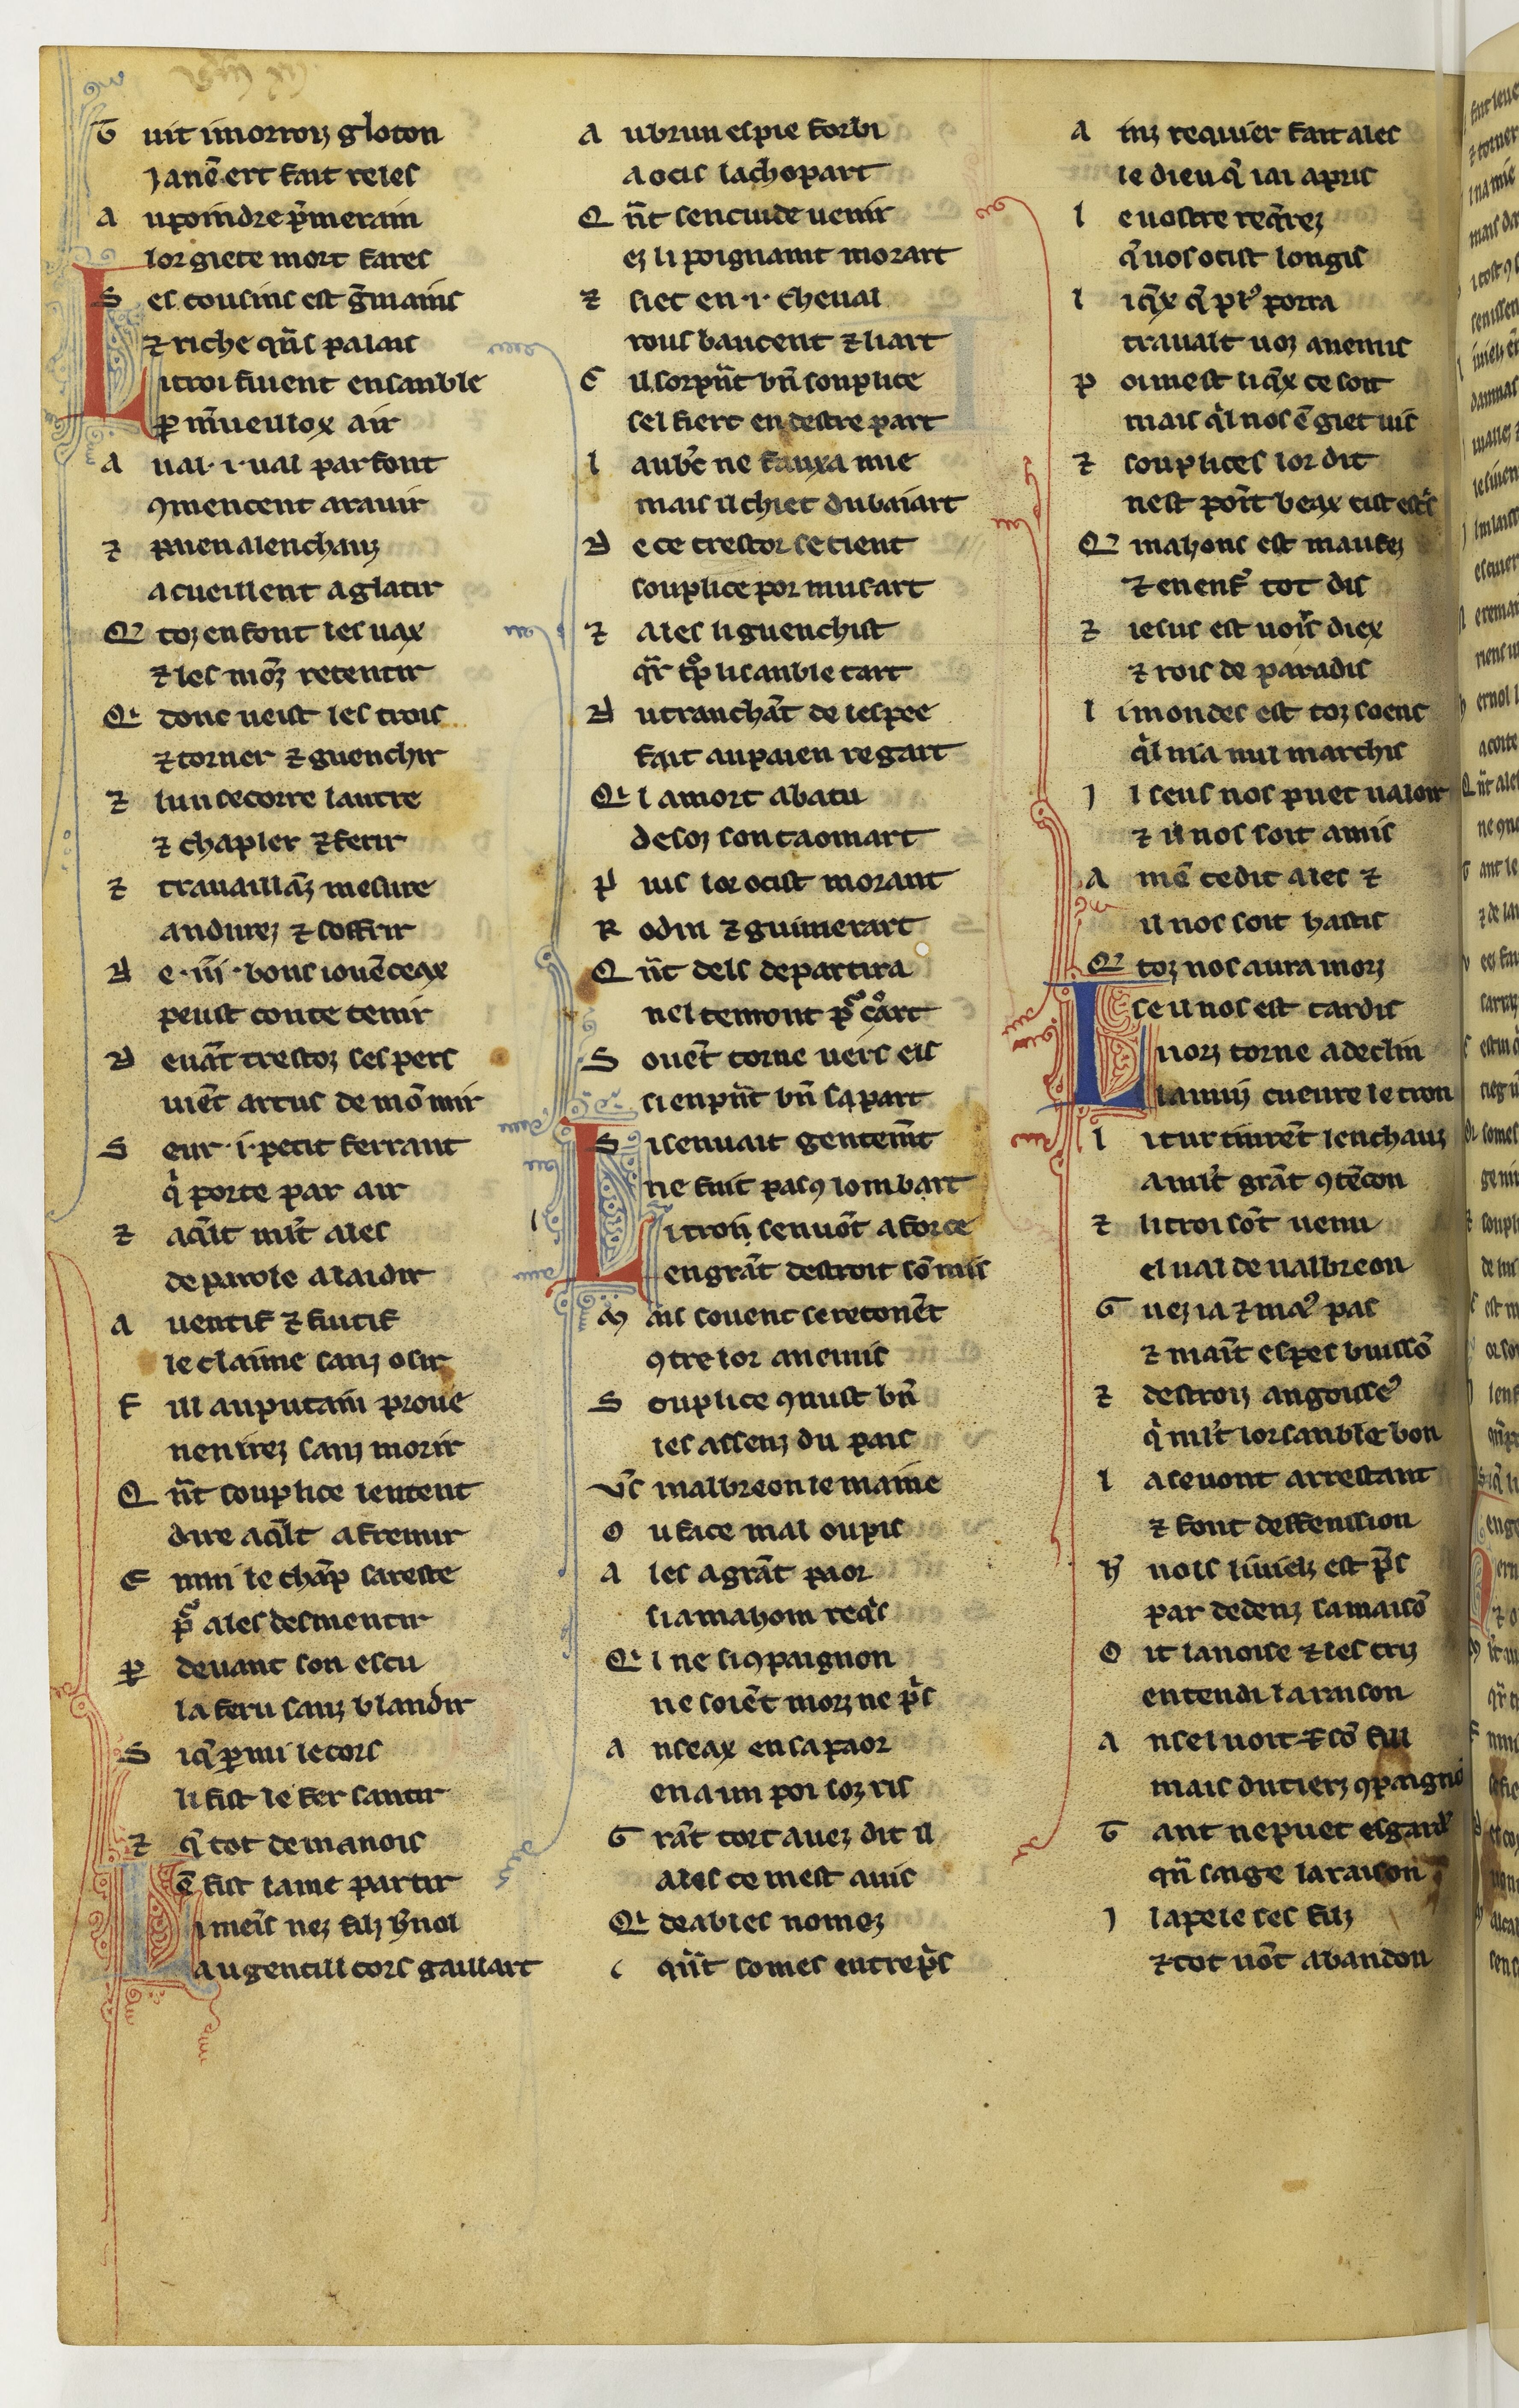 T uit i morroiz gloton
J a nē ert fait reles
A u poindre p̄merain
lor giete mort fares
S es cousins est ḡmains
⁊ riche qn̄s palais
L i troi fuient ensanble
p m̄ueillox air
A ual .i. ual parfont
ꝯmencent a rauir
⁊ paien a lenchauz
acueillent a glatir
Q toz en font les uax
⁊ les mōz retentir
Q donc ueist les trois
⁊ torner ⁊ guenchir
⁊ lun secorre lautre
⁊ chapler ⁊ ferir
⁊ trauaillāz mesure
andurez ⁊ soffrir
D e .iii. bons iouēceax
peust conte tenir
D euāt trestoz ses pers
uiēt artus de mōmir
S eur .i. petit ferrant
q̇ porte par air
⁊ aq̄lt mlt ales
de parole a laidir
A uentif ⁊ fuitif
le claime sanz osir
F ill a putain proue
nen irez sanz morir
Q n̄t souplice lentent
dire aq̄lt a fremir
E nmi le chāp sareste
pͣ ales desmentir
P deuant son escu
la feru sanz blandir
S iq̄ pmi le cors
li fist le fer santir
⁊ q̄ tot demanois
ē fist lame partir
L i meīs nez filz h̄nol
au gentill cors gaillart
A u brun espie forbi
a ocis lachopart
Q n̄t sencuide uenir
ez li poignant morart
⁊ siet en .i. cheual
rous baucent ⁊ liart
C il sorpn̄t bn̄ souplice
sel fiert en destre part
L aub̄c ne fauxa mie
mais il chiet du baiart
D e ce trestor se tient
souplice por musart
⁊ ales li guenchist
qr̄ tͦp li sanble tart
D u tranchāt de lespee
fait au paien regart
Q l a mort abatu
desoz son taomart
P uis lor ocist morant
R odin ⁊ guimerart
Q n̄t dels departira
nel temont pͣ cōart
S ouēt torne uers els
si enpn̄t bn̄ sa part
S il senuait gentem̄t
ne fuit pas ꝯ lombart
L i troi senuōt a force
en grāt destroit sōmis
M ais souent se retonēt
ꝯtre lor anemis
S ouplice ꝯnust bn̄
les assenz du pais
V̄s malbreon le maine
O u face mal ou pis
A les a grāt paor
si a mahom reqͥs
Q l ne si ꝯpaignon
ne soiēt morz ne pͥs
A nseax en sa paor
en a un poi soz ris
G rāt tort auez dit il
ales ce mest auis
Q deables nomez
qn̄t somes entrepͥs
A inz requier fait ales
le dieu q̄ iai apris
L e uostre reqͥrez
q̄ uos ocist longis
L iq̄x q̄ pl porra
traualt uoz anemis
P oi mest liq̄x ce soit
mais qͥl nos ē giet uis
⁊ souplices lor dit
nest poīt beax cist
Q mahons est maufez
⁊ en enf tot dis
⁊ iesus est uoirs diex
⁊ rois de paradis
L i mondes est toz soens
qͥl ni a nul marchis
J l seus nos puet ualoir
⁊ il nos soit amis
A mē ce dit ales ⁊
il nos soit hastis
Q toz nos aura morz
se il nos est tardis
L i iiorz torne a declin
la nuij cueure le tron
L i tur tinrēt lenchauz
a mlt grāt ꝯtēcon
⁊ li troi sōt uenu
el ual de ualbreon
G uez i a ⁊ maͥ pas
⁊ maīt espes buissō
⁊ destroiz angoisseˀ
qͥ mlt lor sanble bon
L a se uont arrestant
⁊ font deffenssion
H̄ nols li uielz est pͥs
par dedenz sa maisō
O it la noise ⁊ les criz
entendi la raison
A nsel uoit ⁊ sō fill
mais du tierz ꝯpaignō
T ant ne puet esgardˀ
qn̄ sage la raison
J l apele ses filz
⁊ tot uōt abandon